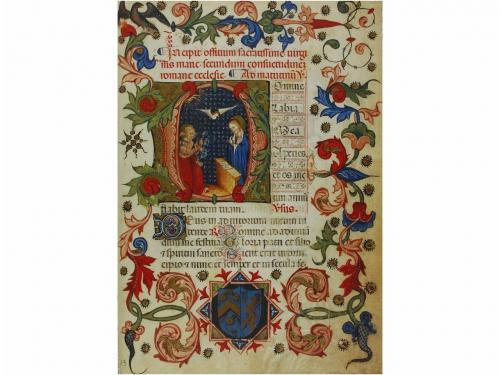 Incipit offitium sacratissime virgi
nis marie secundum consuetudinē
romane ecclesie. Ad matutinū V.
Domine
labia
mea
aperies
et os me
um annū
tiabit laudem tuam. Vsus.
Deus in adiutorium meum in
tende R Domine ad adiuvā
dum me festina Gloria patri et filio
et spiritui sancto Sicut erat in prin
cipio et nunc et semper et in secula se